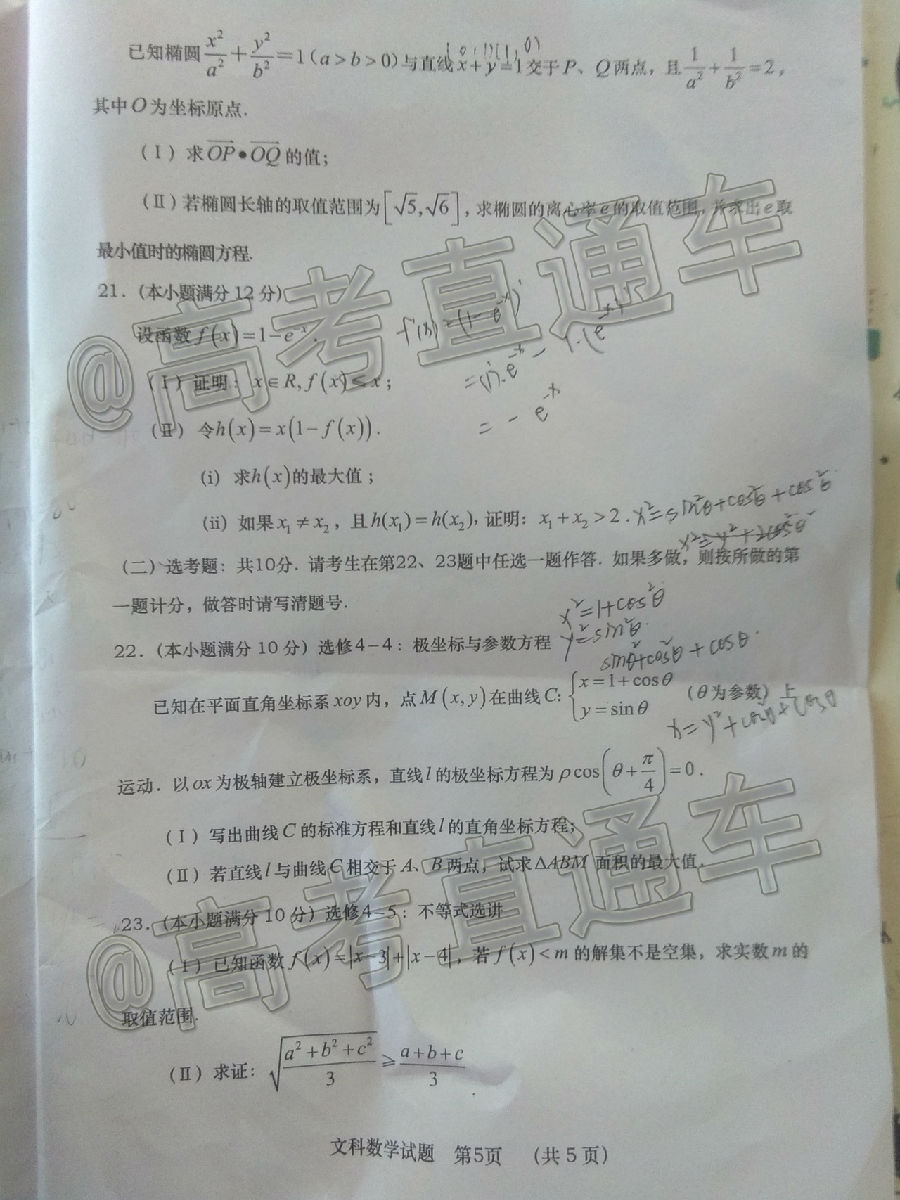 已知椭圆 x²/a² + y²/b² = 1 (a > b > 0) 与直线 x + y = 1 交于 P、Q 两点，且 1/a² + 1/b² = 2，
其中 O 为坐标原点.
（Ⅰ）求 OP • OQ 的值；
（Ⅱ）若椭圆长轴的取值范围为 [√5, √6]，求椭圆的离心率 e 的取值范围，并求出 e 取
最小值时的椭圆方程.
21.（本小题满分 12 分）
设函数 f(x) = 1 - e⁻ˣ.
（Ⅰ）证明：x∈R, f(x) ≤ x；
（Ⅱ）令 h(x) = x(1 - f(x)).
(i) 求 h(x) 的最大值；
(ii) 如果 x₁ ≠ x₂，且 h(x₁) = h(x₂)，证明：x₁ + x₂ > 2.
x² = sin²θ + cos²θ + cos²θ
x² = y² + 2cos²θ
（二）选考题：共10分. 请考生在第22、23题中任选一题作答. 如果多做，则按所做的第
一题计分，做答时请写清题号.
x² = 1 + cos²θ
y² = sin²θ
22.（本小题满分 10 分）选修4－4：极坐标与参数方程
已知在平面直角坐标系 xoy 内，点 M(x, y) 在曲线 C: { x = 1 + cosθ
y = sinθ （θ 为参数）上
运动. 以 ox 为极轴建立极坐标系，直线 l 的极坐标方程为 ρcos(θ + π/4) = 0.
（Ⅰ）写出曲线 C 的标准方程和直线 l 的直角坐标方程；
（Ⅱ）若直线 l 与曲线 C 相交于 A、B 两点，试求 ΔABM 面积的最大值.
23.（本小题满分 10 分）选修4－5：不等式选讲
（Ⅰ）已知函数 f(x) = |x-3| + |x-4|，若 f(x) < m 的解集不是空集，求实数 m 的
取值范围.
（Ⅱ）求证：√((a² + b² + c²)/3) ≥ (a+b+c)/3
文科数学试题 第5页 （共 5 页）
@高考直通车
@高考直通车